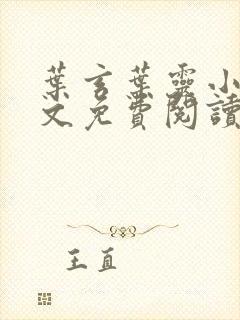 葉言葉靈小
文免費閱讀
王直